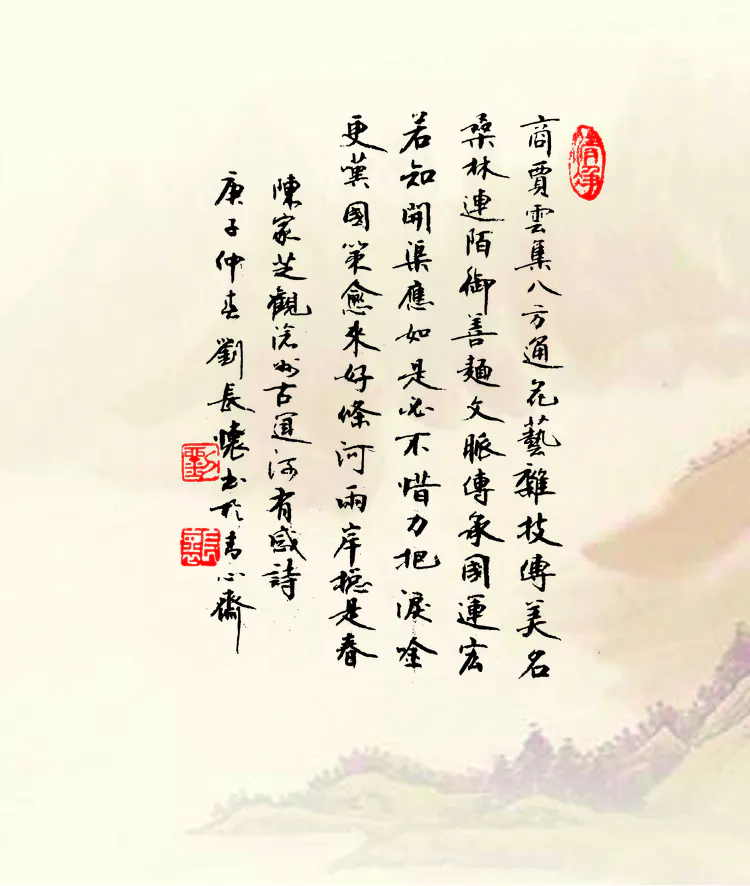 清净
商賈雲集八方通花藝雜技傳美名
桑林連陌御善麵文脈傳承國運宏
若知開渠應如是必不惜力把淚唫
更嘆國策愈來好條河兩岸總是春
陳家芝觀滄州古運河有感詩
庚子仲春劉長懷書於青心齋
劉